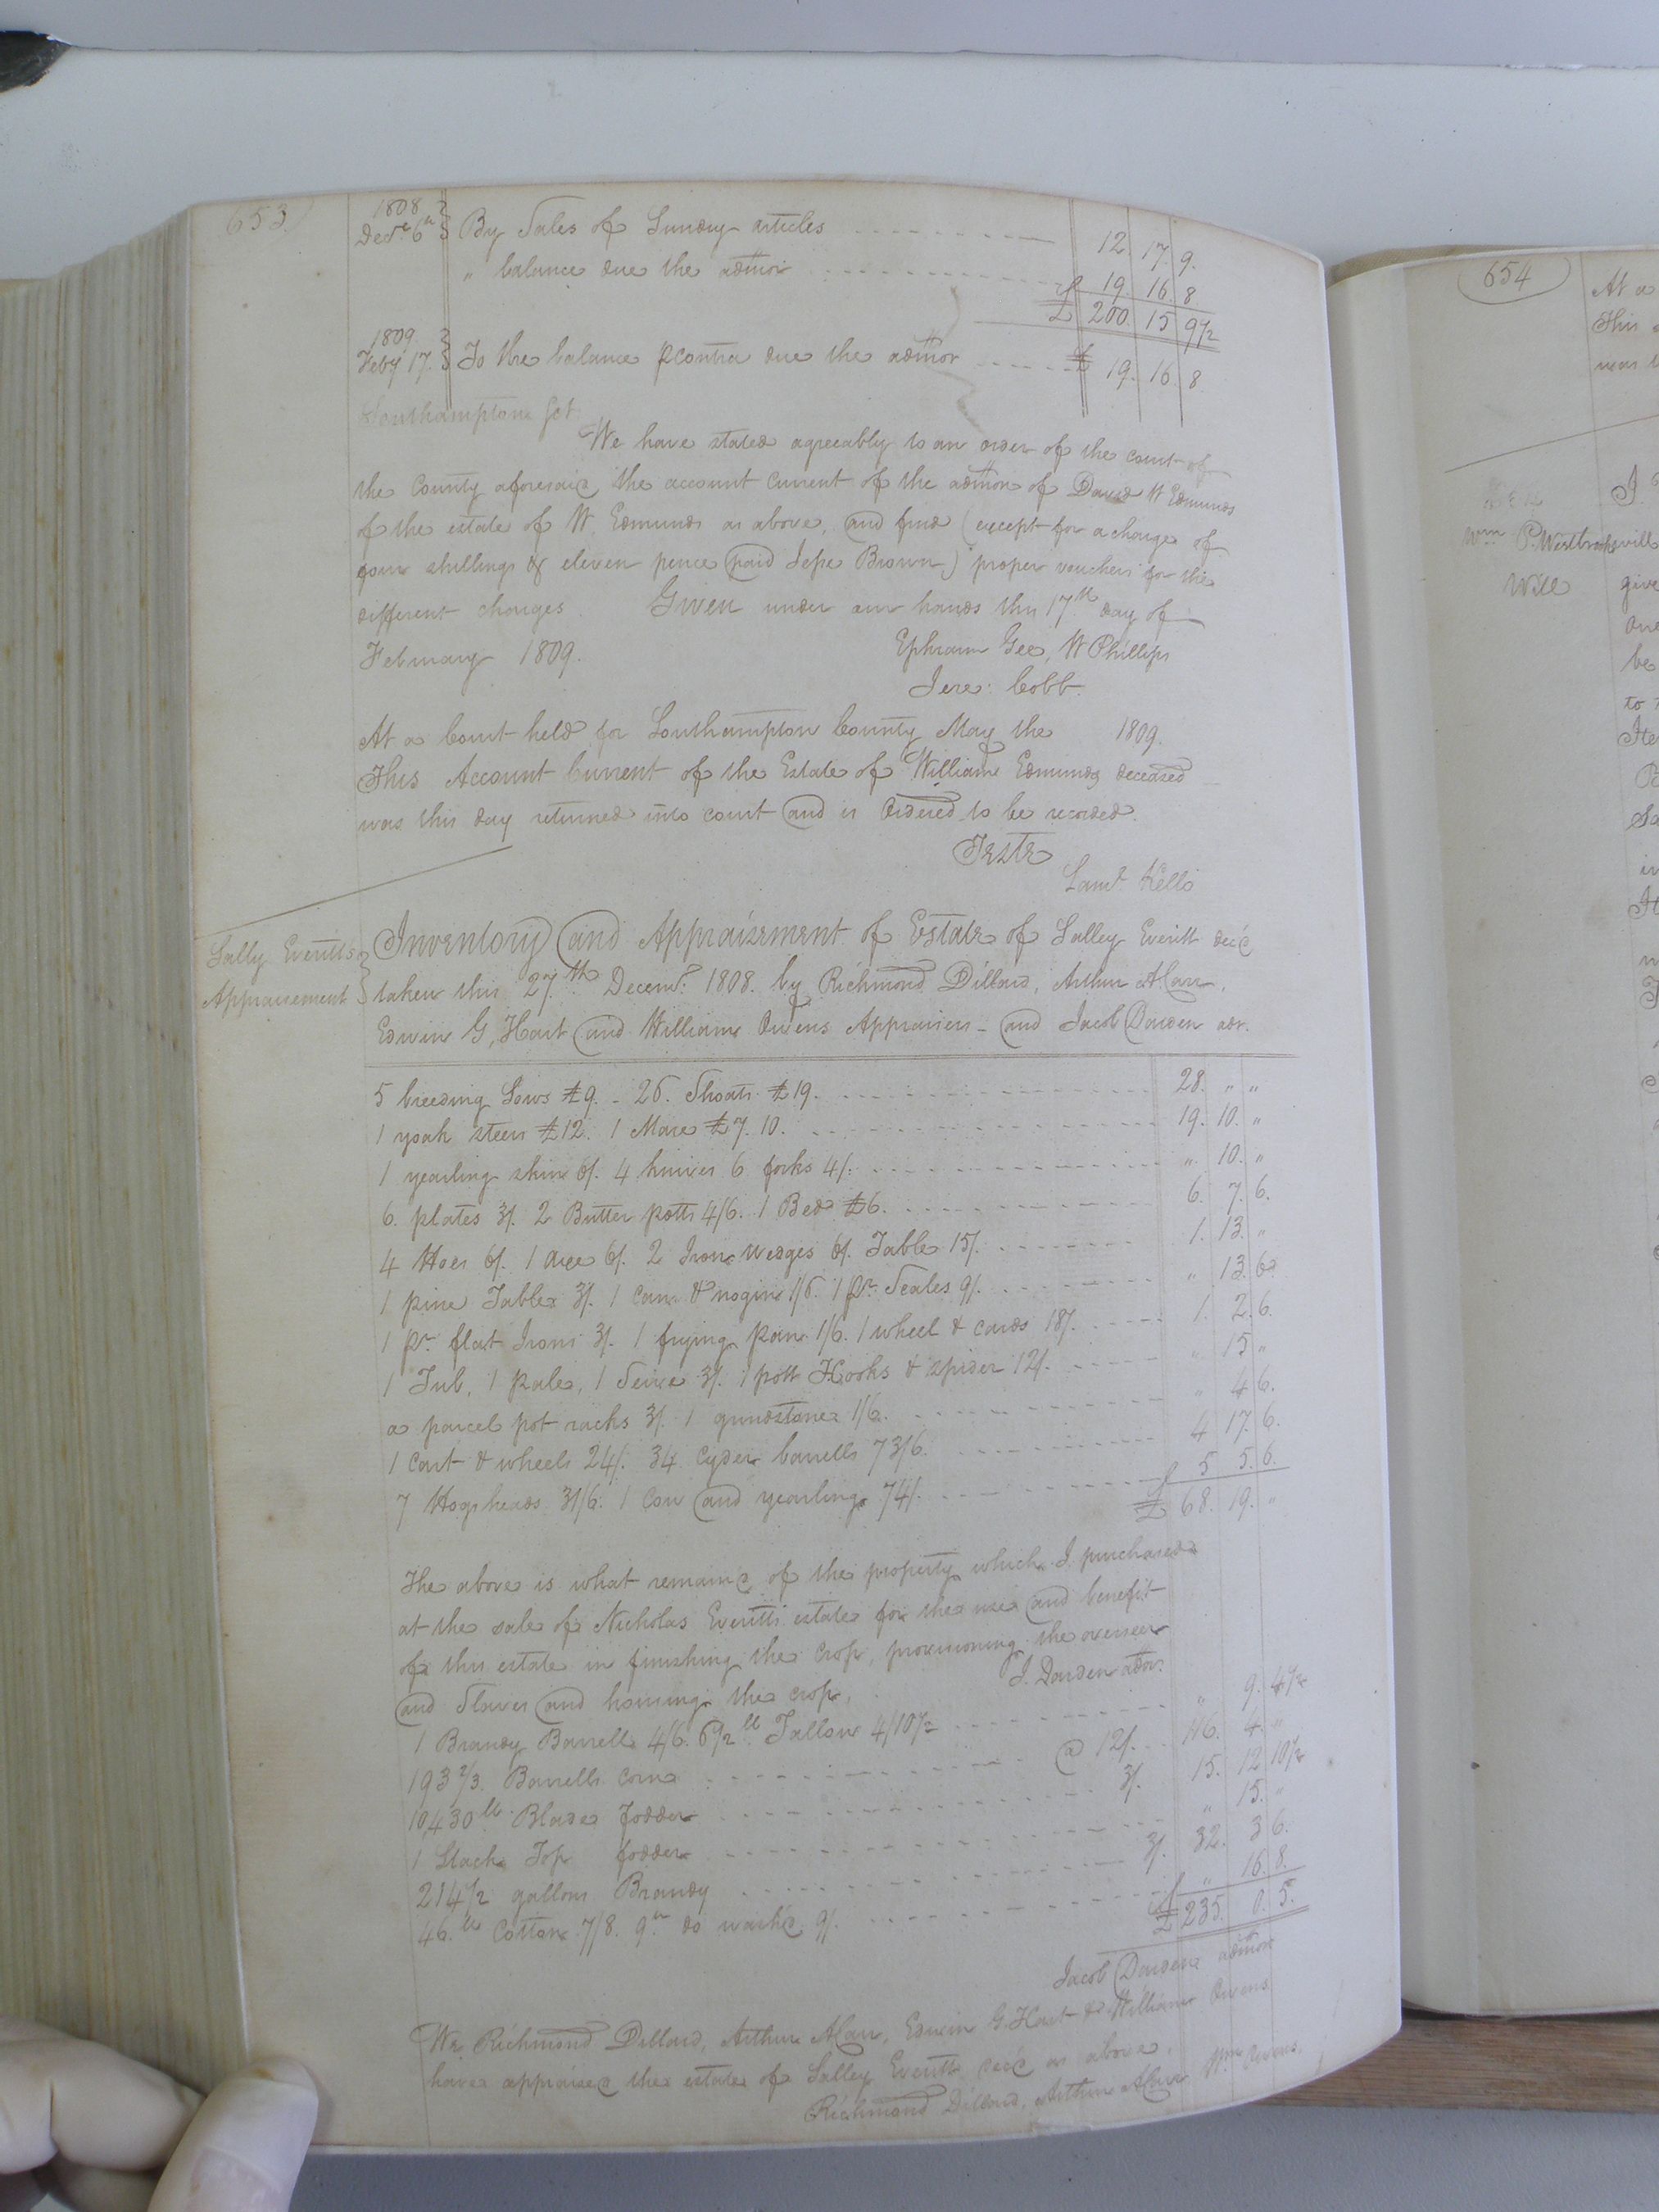 653.
1808
Decr. 6th By Sales of Sundry articles 12. 17. 9.
" balance due the admor 19. 16. 8
£ 200. 15 9 1/2
1809
Feby 17. To the balance pContra due the admor £ 19. 16. 8
Southampton Sct
We have stated agreeably to an order of the court of
the County aforesaid the account Current of the admon of David W Edmunds
of the estate of W. Edmunds as above, and find (except for a charge of
four shillings & eleven pence paid Jesse Brown) proper vouchers for the
different charges. Given under our hands this 17th day of
February 1809. Ephraim Gee, W Phillips
Jere: Cobb.
At a Court held for Southampton County May the 1809.
This Account Current of the Estate of William Edmunds deceased
was this day returned into court and is Ordered to be recorded.
Teste
Saml. Kello
Sally Everitts
Appraisement
Inventory and Appraisement of Estate of Salley Everitt dec'd
taken this 27th Decemr. 1808. by Richmond Dillard, Arthur A Carr,
Edwin G, Hart and William Owens Appraisers - and Jacob Darden adr.
5 breeding Sows £9. - 26. Shoats £19. 28. " "
1 yoak steers £12. 1 Mare £7. 10. 19. 10. "
1 yearling skin 6/. 4 knives 6 forks 4/. " 10. "
6. plates 3/. 2 Butter potts 4/6. 1 Bed £6. 6. 7. 6.
4 Hoes 6/. 1 axe 6/. 2 Iron wedges 6/. Table 15/. 1. 13. "
1 pine Table 3/. 1 Can & nogin 1/6. 1 pr. Scales 9/. " 13. 6
1 pr. flat Irons 3/. 1 frying pan 1/6. 1 wheel & cards 18/. 1. 2. 6.
1 Tub, 1 pale, 1 Seive 3/. 1 pott Hooks & spider 12/. " 15 "
a parcel pot racks 3/. 1 grindstone 1/6. " 4 6.
1 Cart & wheels 24/. 34 Cyder barrells 73/6. 4 17. 6.
7 Hogsheads 31/6. 1 Cow and yearling 74/. 5 5. 6.
£ 68. 19. "
The above is what remains of the property which I purchased
at the sale of Nicholas Everitts estate for the use and benefit
of this estate in finishing the Crop, provisioning the overseer
and Slaves and housing the crop, J. Darden ador.
1 Brandy Barrell 4/6. 6 1/2 lb. Tallow 4/10 1/2 " 9. 4 1/2
193 2/3. Barrells Corn @ 12/. 116. 4. "
10,430 lb. Blade fodder 3/. 15. 12 10 1/2
1 Stack Top fodder " 15. "
214 1/2 gallons Brandy 3/. 32. 3 6.
46. lb Cotton 7/8. 9 lb do wash'd 9/. " 16. 8.
£ 235. 0. 5.
Jacob Darden admor
We Richmond Dillard, Arthur A Carr, Edwin G. Hart & William Owens
have appraised the estate of Salley Everitt dec'd as above.
Richmond Dillard, Arthur A Carr Wm Owens.
654
At a
This
Wm P. Westbrook
Will
give
be
to
Ite